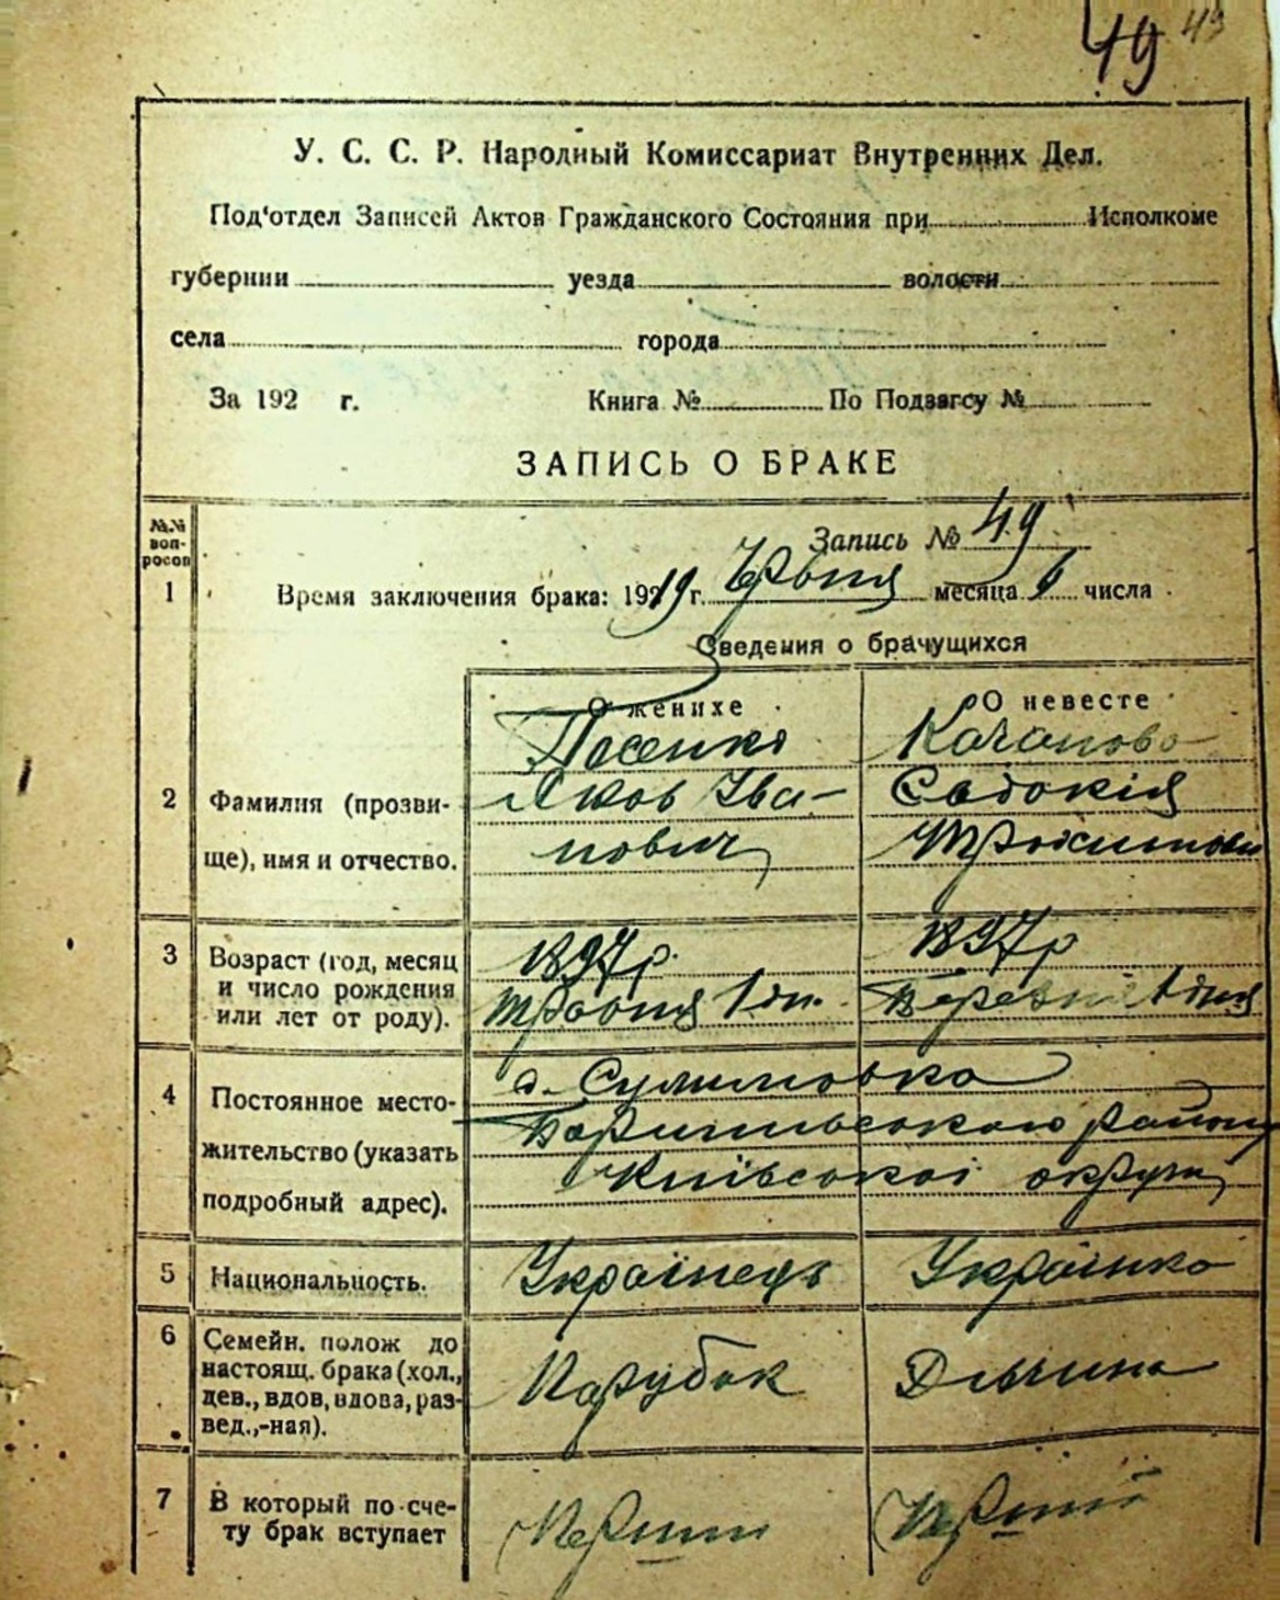 49 49
У. С. С. Р. Народный Комиссариат Внутренних Дел.
Под'отдел Записей Актов Гражданского Состояния при Исполкоме
губернии уезда волости
села города
За 192 г. Книга № По Подзагсу №
ЗАПИСЬ О БРАКЕ
№.№ вопросов
Запись № 49
1 Время заключения брака: 1919 г. Червня месяца 6 числа
Сведения о брачущихся
О женихе О невесте
Пасенко Качанова
2 Фамилия (прозви- Яков Іва- Євдокія
ще), имя и отчество. нович
3 Возраст (год, месяц 1897 р. 1897 р
и число рождения травня 1 дн. Березня 1 дня
или лет от роду).
с. Сулимовка
4 Постоянное место- Баришівського району
жительство (указать Київської округи
подробный адрес).
5 Национальность. Українець Українка
6 Семейн. полож до
настоящ. брака (хол., Парубок Дівчина
дев., вдов, вдова, раз-
вед.,-ная).
7 В который по сче- Перший Перший
ту брак вступает